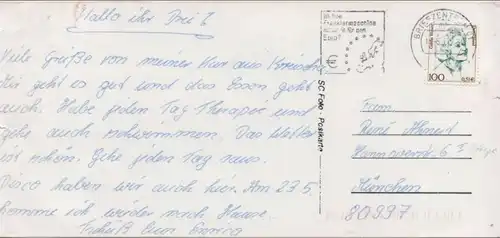 Hallo ihr Drei!
Viele Grüße von meiner Kur aus
Mir geht es gut und das Essen geht
auch. Habe jeden Tag Therapie und
gehe auch schwimmen. Das Wetter
ist schön. Gehe jeden Tag raus.
Disco haben wir auch hier. Am 23.5
komme ich wieder nach Hause.
Tschüß Eure
SC Foto - Postkarte
Euro?
BRIEFZENTRUM
100
0,51€
Fam.
René
6
München
80997